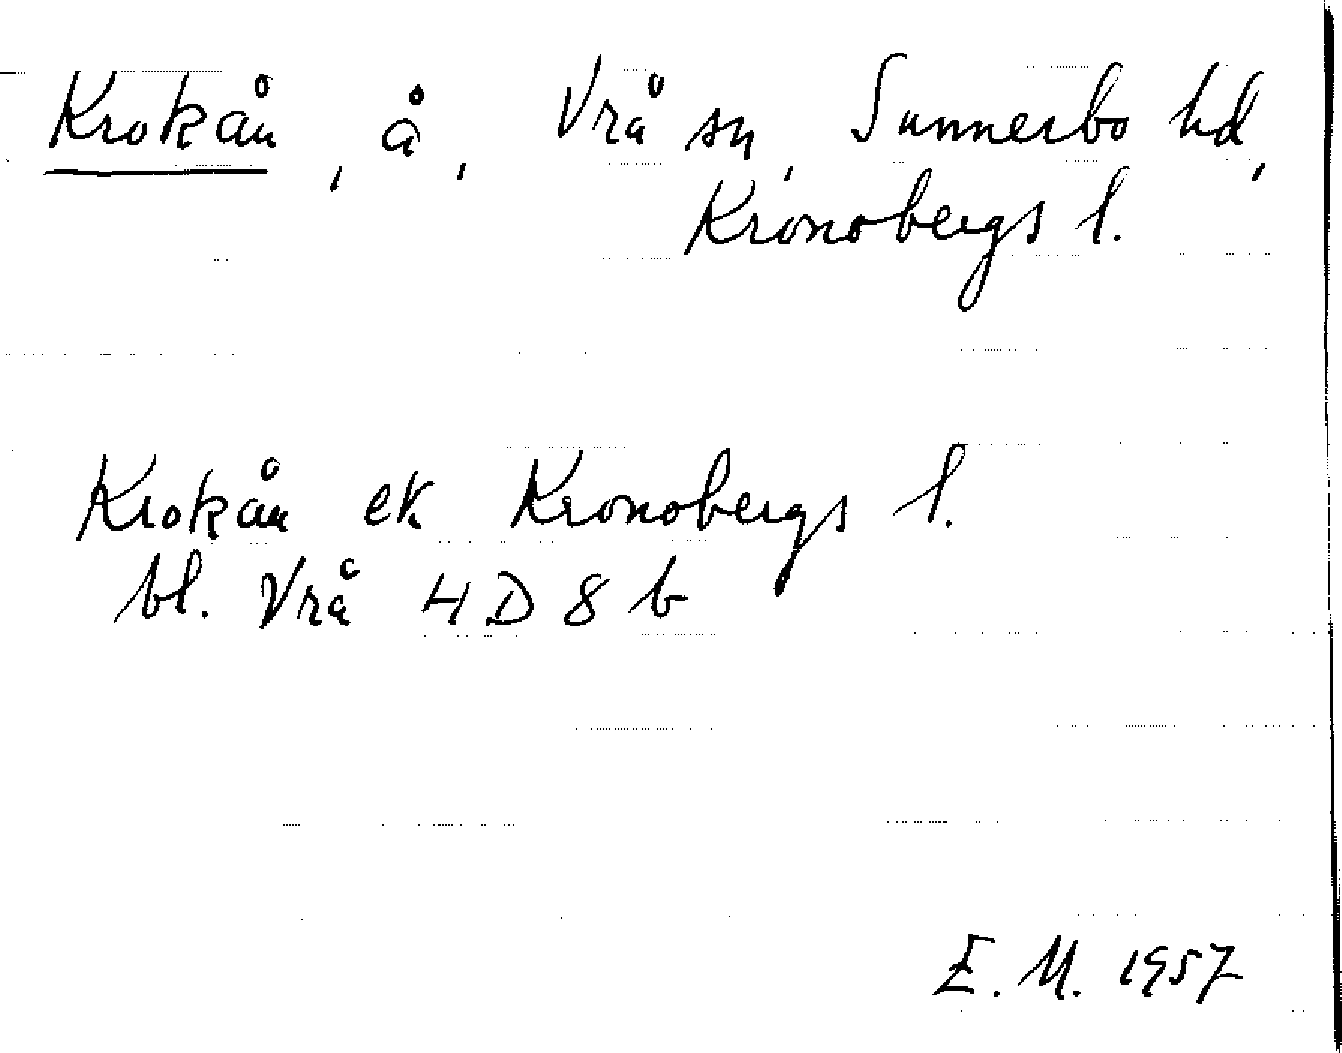 Krokån, å, Vrå sn, Sunnerbo hd,
Kronobergs l.
Krokån ek Kronobergs l.
bl. Vrå 4D 8 b
E. M. 1957